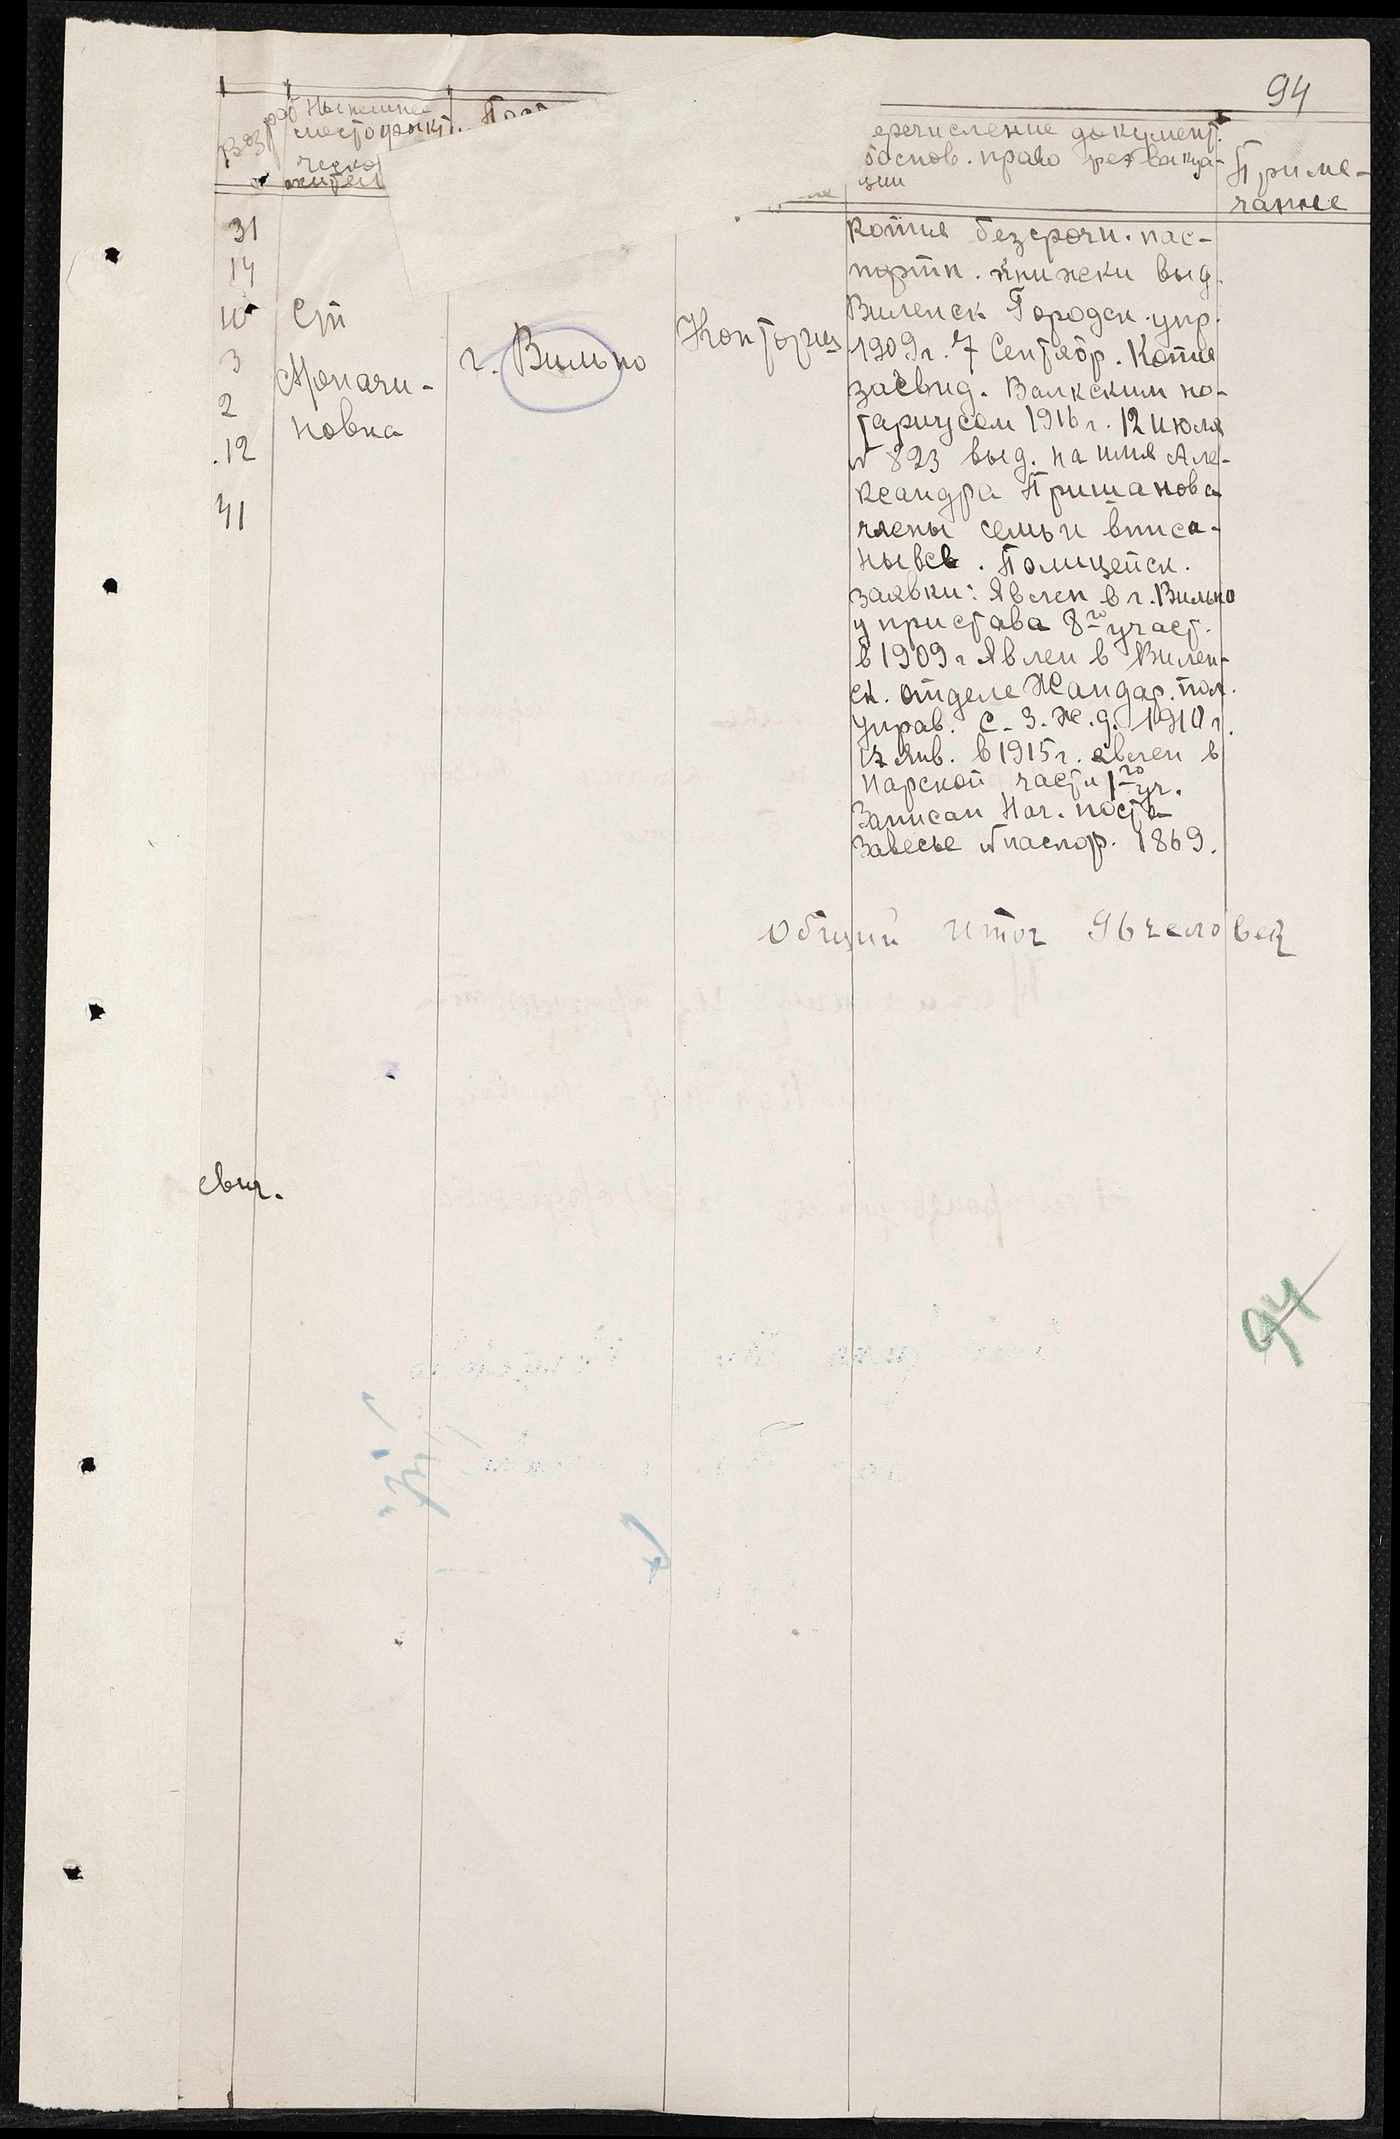 94
Возр
Нынешнее
местожит.
еречисление документ.
боснов. право реэвакуа-
ции
Приме-
чание
31
14
10
3
2
12
41
Ст
новка
г. Вильно
Конторщ
Копия безсрочн. пас-
портн. книжски выд.
Виленск Городск. упр.
1909 г. 7 Сентябр. Копия
засвид. Валкским но-
тариусом 1916 г. 12 июля
№ 823 выд. на имя Але-
ксандра Пришанова
члены семьи вписа-
ны все. Полицейск.
заявки: Явлен в г. Вильно
у пристава 8го участ.
в 1909 г Явлен в Вилен-
ск. отделе Жандар. пол.
Управ. С-З. ж. д. 1910 г.
12 янв. в 1915 г. явлен в
Нарской части 1го уч.
Записан Нач. поста
Завесье № паспор. 1869.
Общий итог 96 человек
евич.
94